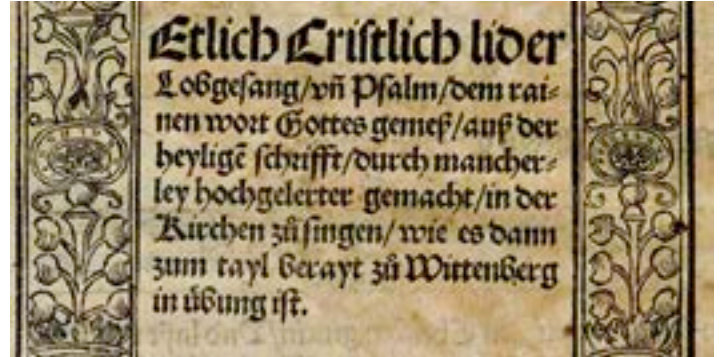 Etlich Cristlich lider
Lobgesang/vñ Psalm/dem rai⸗
nen wort Gottes gemeß/auß der
heyligẽ schrifft/durch mancher⸗
ley hochgelerter gemacht/in der
Kirchen zů singen/ wie es dann
zum tayl berayt zů Wittenberg
in übung ist.